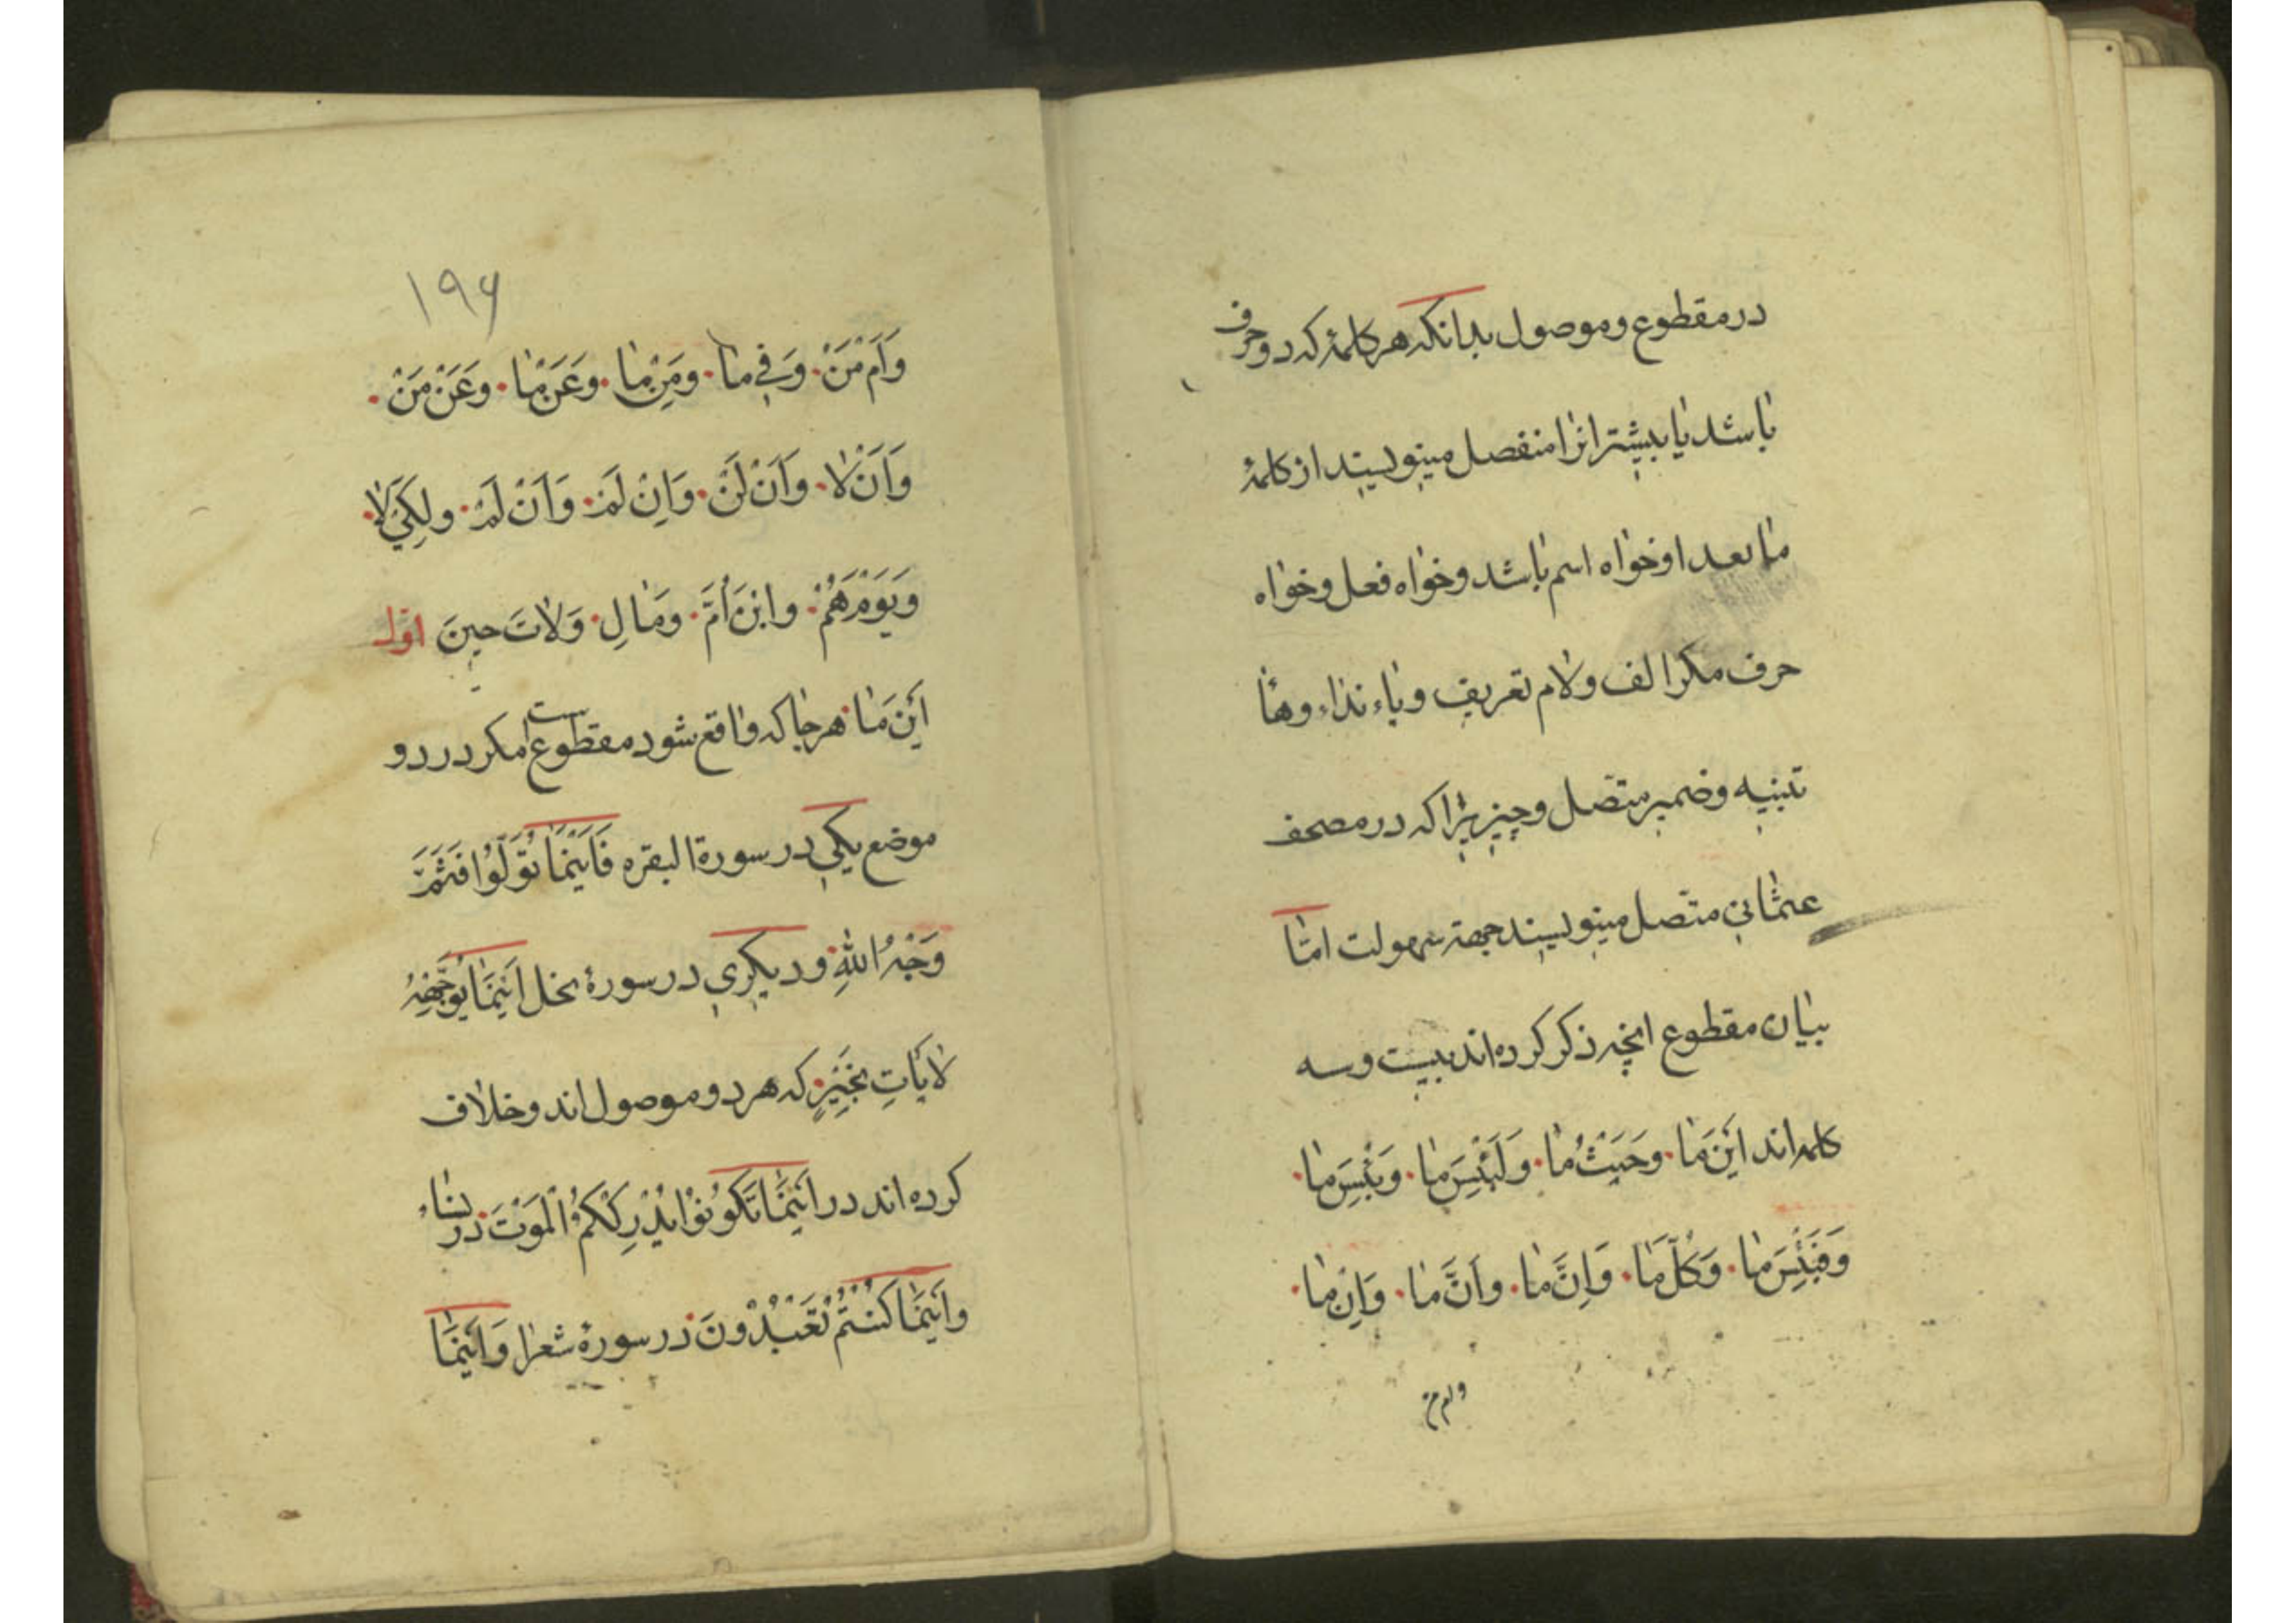 در مقطوع و موصول بدانکه هر کلمهٔ که دو حرف
باشد یا بیشتر انرا منفصل مینویسند از کلمهٔ
ما بعد او خواه اسم باشد و خواه فعل و خواه
حرف مکر الف و لام تعریف و یاء نداء و هاٴ
تنبیه و ضمیر متصل و چیزیرا که در مصحف
عثمانی متصل مینویسند جهة سهولت امّا
بیان مقطوع انچه ذکر کرده اند بیست و سه
کلمه اند اَیْنَ مَا وَحَیْثُ مٰا وَلَبِئْسَ مٰا وَبِئْسَ مٰا
وَفَبِئْسَ مٰا وَکُلَّ مَا وَاِنَّ مٰا وَاَنَّ مٰا وَاِنْ مٰا
وام من
۱۹۶
وَاَمْ مَنْ وَفِی مٰا وَمِنْ مٰا وَعَنْ مٰا وَعَنْ مَنْ
وَاَنْ لٰا وَاَنْ لَنْ وَاِنْ لَمْ وَاَنْ لَمْ وَلِکَیْ لٰا
وَیَوْمَ هُمْ وَابْنَ اُمَّ وَمَالِ وَلٰاتَ حِینَ اوّل
اَیْنَ مٰا هر جا که واقع شود مقطوع است مکر در دو
موضع یکی در سورة البقره فَاَیْنَمٰا تُوَلُّوْا فَثَمَّ
وَجْهُ اللّٰهِ و دیکری در سورهٔ نحل اَیْنَمٰا یُوَجِّهْهُ
لٰا یَأتِ بِخَیْرٍ که هر دو موصول اند و خلاف
کرده اند در اَیْنَمٰا تَکُونُوْا یُدْرِکْکُمُ الْمَوْتُ در نساء
وَاَیْنَمٰا کُنْتُمْ تَعْبُدُونَ در سورهٔ شعرا وَاَیْنَمٰا